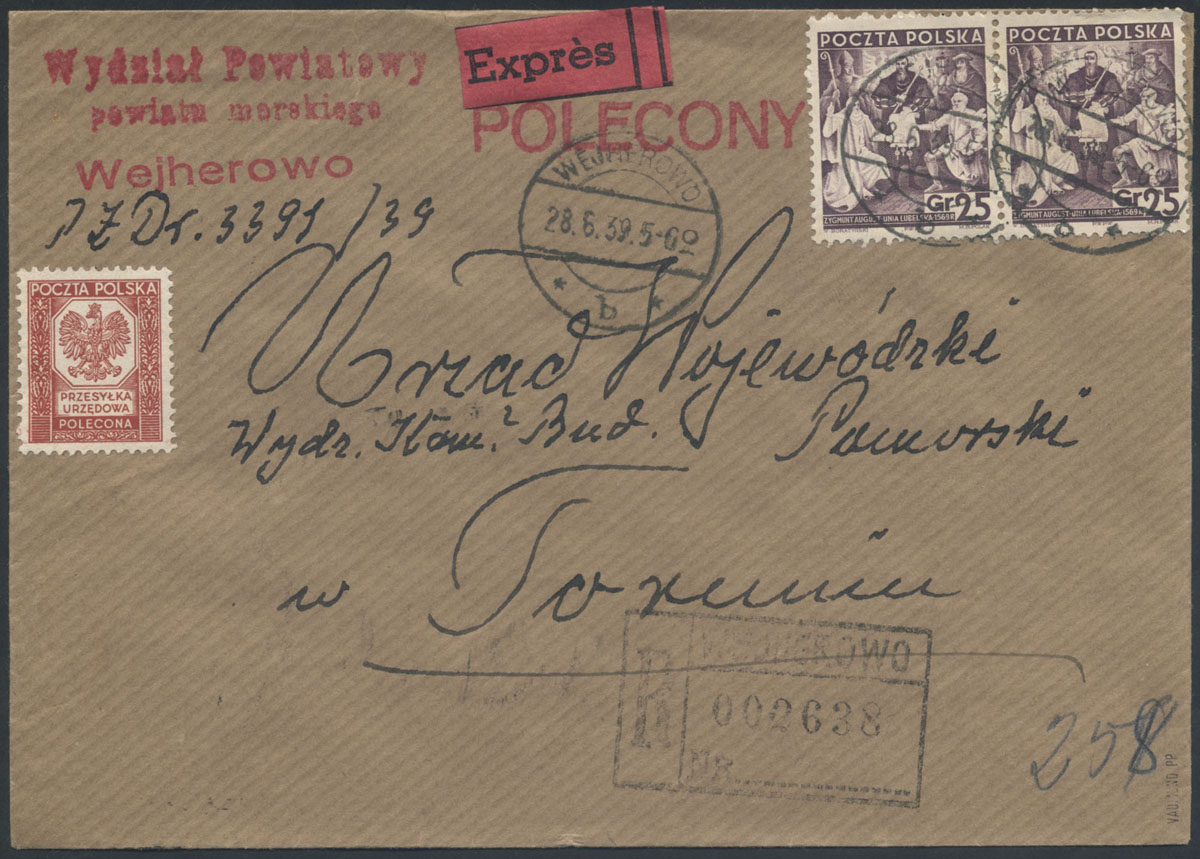 Wydział Powiatowy
powiatu morskiego
Wejherowo
Exprès
POLECONY
3391/39
WEJHEROWO
28.6.39.5-6
b
POCZTA POLSKA
Gr 25
ZYGMUNT AUGUST-UNIA LUBELSKA 1569 R.
POCZTA POLSKA
Gr 25
ZYGMUNT AUGUST-UNIA LUBELSKA 1569 R.
POCZTA POLSKA
PRZESYŁKA
URZĘDOWA
POLECONA
Urząd Wojewódzki
Wydz. Kom. Bud. Pomorski
w Toruniu
R
WEJHEROWO
002638
NR.
258
PP